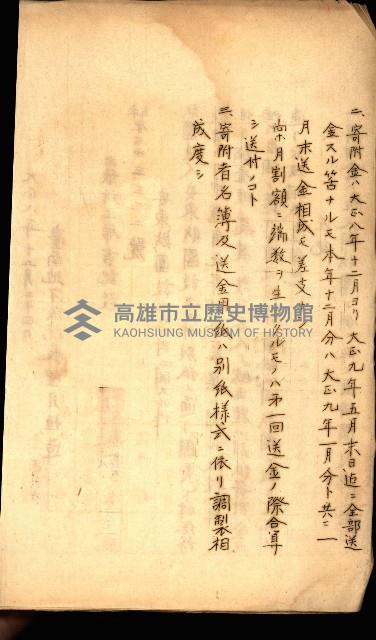 二、寄附金ハ大正八年十二月ヨリ大正九年五月末日迄ニ全部送
金スル筈ナルモ本年十二月分ハ大正九年一月分ト共ニ一
月末送金相成モ差支ナ
尚月割額ニ端数ヲ生 タルモノハ第一回送金ノ際合算
シ送付ノコト
三、寄附者名簿及送金用紙ハ別紙様式ニ依リ調製相
成度シ
高雄市立歷史博物館
KAOHSIUNG MUSEUM OF HISTORY